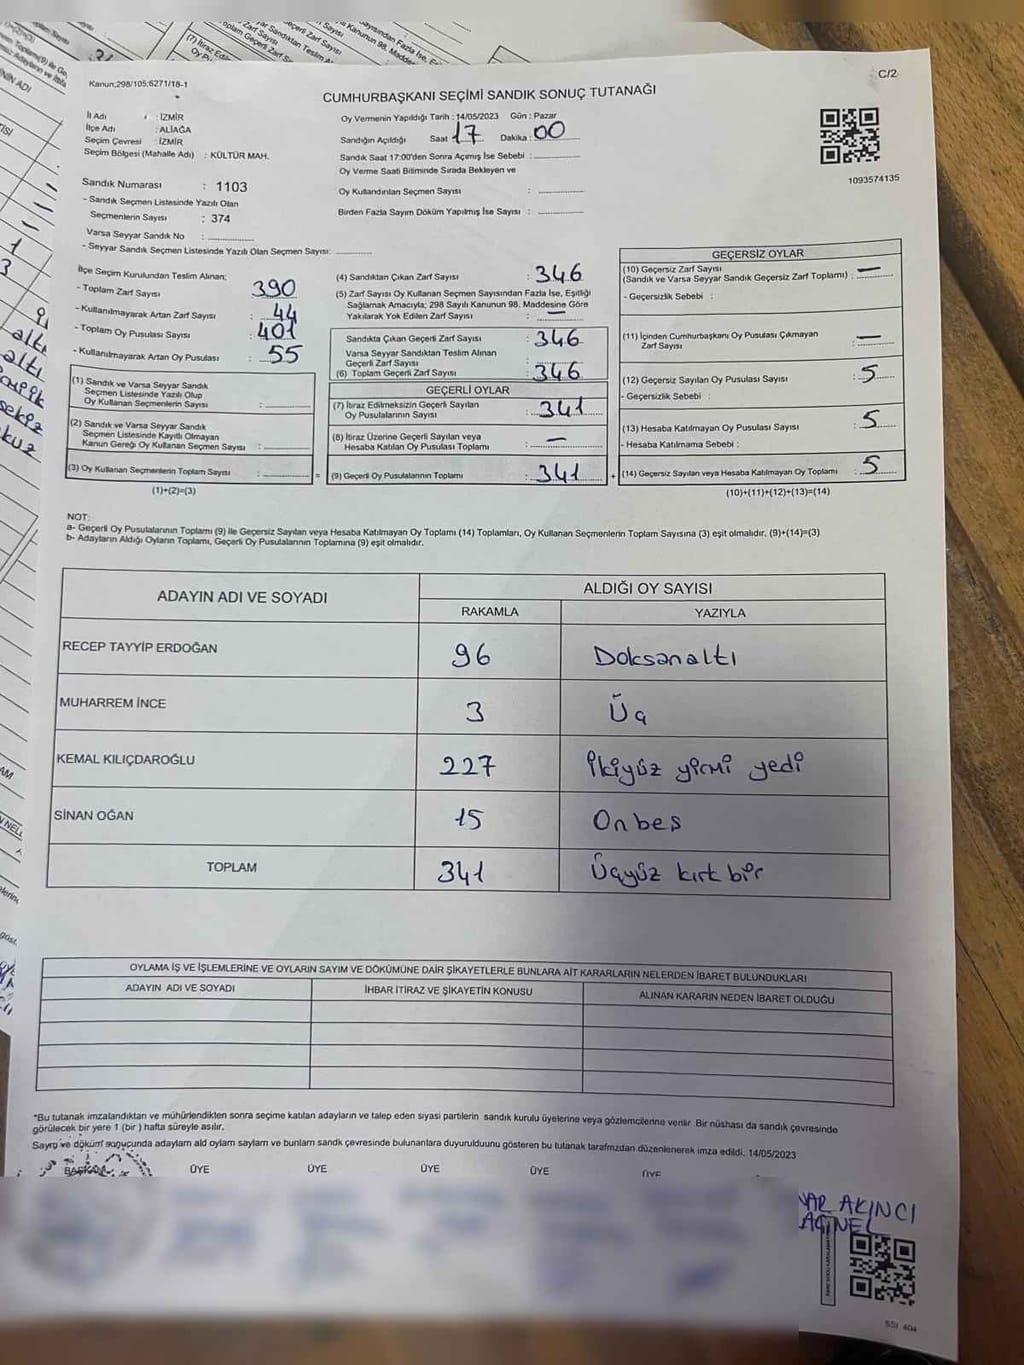 C/2
Kanun;298/105;6271/18-1
CUMHURBAŞKANI SEÇİMİ SANDIK SONUÇ TUTANAĞI
İl Adı : İZMİR
İlçe Adı : ALİAĞA
Seçim Çevresi : İZMİR
Seçim Bölgesi (Mahalle Adı) : KÜLTÜR MAH.
Oy Vermenin Yapıldığı Tarih : 14/05/2023 Gün : Pazar
Sandığın Açıldığı Saat 17 Dakika : 00
Sandık Saat 17:00'den Sonra Açımış İse Sebebi :
Oy Verme Saati Bitiminde Sırada Bekleyen ve
Oy Kullandırılan Seçmen Sayısı :
Birden Fazla Sayım Döküm Yapılmış İse Sayısı :
1093574135
Sandık Numarası : 1103
- Sandık Seçmen Listesinde Yazılı Olan
Seçmenlerin Sayısı : 374
Varsa Seyyar Sandık No :
- Seyyar Sandık Seçmen Listesinde Yazılı Olan Seçmen Sayısı:
İlçe Seçim Kurulundan Teslim Alınan:
- Toplam Zarf Sayısı : 390
- Kullanılmayarak Artan Zarf Sayısı : 44
- Toplam Oy Pusulası Sayısı : 401
- Kullanılmayarak Artan Oy Pusulası : 55
(1) Sandık ve Varsa Seyyar Sandık
Seçmen Listesinde Yazılı Olup
Oy Kullanan Seçmenlerin Sayısı :
(2) Sandık ve Varsa Seyyar Sandık
Seçmen Listesinde Kayıtlı Olmayan
Kanun Gereği Oy Kullanan Seçmen Sayısı :
(3) Oy Kullanan Seçmenlerin Toplam Sayısı :
(1)+(2)=(3)
(4) Sandıktan Çıkan Zarf Sayısı : 346
(5) Zarf Sayısı Oy Kullanan Seçmen Sayısından Fazla İse, Eşitliği
Sağlamak Amacıyla; 298 Sayılı Kanunun 98. Maddesine Göre
Yakılarak Yok Edilen Zarf Sayısı : —
Sandıkta Çıkan Geçerli Zarf Sayısı : 346
Varsa Seyyar Sandıktan Teslim Alınan
Geçerli Zarf Sayısı :
(6) Toplam Geçerli Zarf Sayısı : 346
GEÇERLİ OYLAR
(7) İtiraz Edilmeksizin Geçerli Sayılan
Oy Pusulalarının Sayısı : 341
(8) İtiraz Üzerine Geçerli Sayılan veya
Hesaba Katılan Oy Pusulası Toplamı : —
= (9) Geçerli Oy Pusulalarının Toplamı : 341
GEÇERSİZ OYLAR
(10) Geçersiz Zarf Sayısı
(Sandık ve Varsa Seyyar Sandık Geçersiz Zarf Toplamı) : —
- Geçersizlik Sebebi :
(11) İçinden Cumhurbaşkanı Oy Pusulası Çıkmayan
Zarf Sayısı : —
(12) Geçersiz Sayılan Oy Pusulası Sayısı : 5
- Geçersizlik Sebebi :
(13) Hesaba Katılmayan Oy Pusulası Sayısı : 5
- Hesaba Katılmama Sebebi :
+ (14) Geçersiz Sayılan veya Hesaba Katılmayan Oy Toplamı : 5
(10)+(11)+(12)+(13)=(14)
NOT:
a- Geçerli Oy Pusulalarının Toplamı (9) ile Geçersiz Sayılan veya Hesaba Katılmayan Oy Toplamı (14) Toplamları, Oy Kullanan Seçmenlerin Toplam Sayısına (3) eşit olmalıdır. (9)+(14)=(3)
b- Adayların Aldığı Oyların Toplamı, Geçerli Oy Pusulalarının Toplamına (9) eşit olmalıdır.
ADAYIN ADI VE SOYADI
ALDIĞI OY SAYISI
RAKAMLA YAZIYLA
RECEP TAYYİP ERDOĞAN 96 Doksanaltı
MUHARREM İNCE 3 Üç
KEMAL KILIÇDAROĞLU 227 İkiyüz yirmi yedi
SİNAN OĞAN 15 Onbeş
TOPLAM 341 Üçyüz kırk bir
OYLAMA İŞ VE İŞLEMLERİNE VE OYLARIN SAYIM VE DÖKÜMÜNE DAİR ŞİKAYETLERLE BUNLARA AİT KARARLARIN NELERDEN İBARET BULUNDUKLARI
ADAYIN ADI VE SOYADI İHBAR İTİRAZ VE ŞİKAYETİN KONUSU ALINAN KARARIN NEDEN İBARET OLDUĞU
*Bu tutanak imzalandıktan ve mühürlendikten sonra seçime katılan adayların ve talep eden siyasi partilerin sandık kurulu üyelerine veya gözlemcilerine verilir. Bir nüshası da sandık çevresinde
görülecek bir yere 1 (bir ) hafta süreyle asılır.
Sayım ve döküm sonucunda adayların aldı oyların sayların ve bunların sandk çevresinde bulunanlara duyurulduunu gösteren bu tutanak tarafmzdan düzenlenerek imza edildi. 14/05/2023
BAŞKAN ÜYE ÜYE ÜYE ÜYE ÜYE
AKINCI
SSI 404